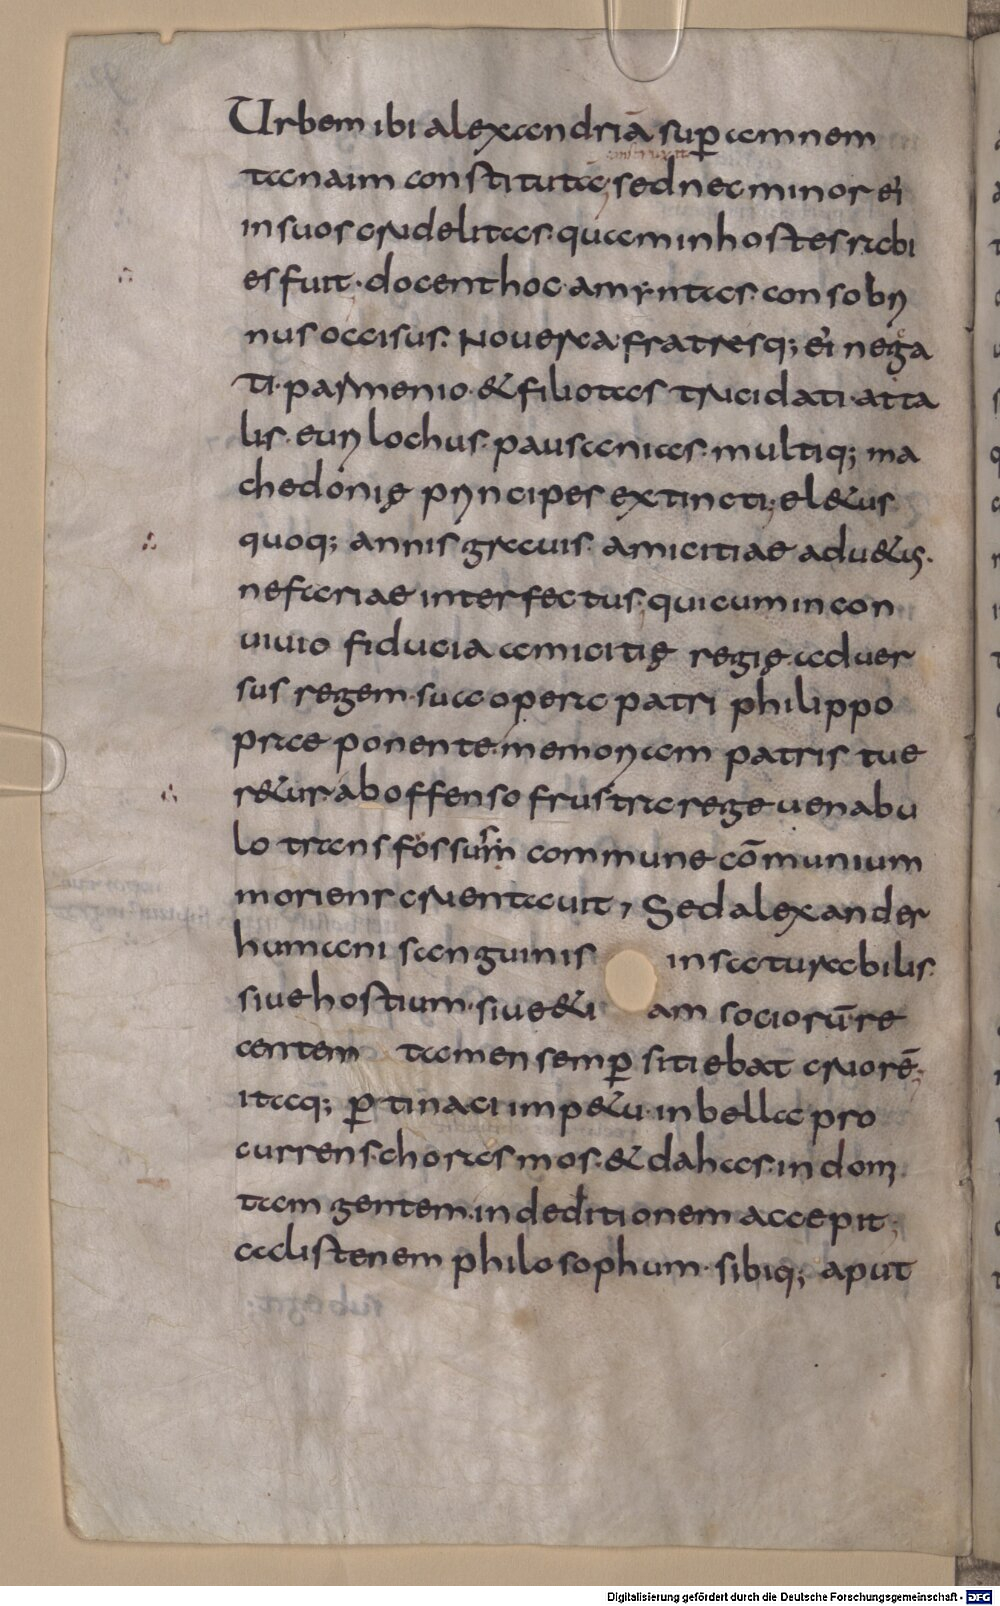 Urbem ibi alexandriā sup̄ amnem
tanaim constituta; sed nec minor ei
insuos crudelitas. quam inhostes rabi
es fuit. docent hoc. amyntas. consobri
nus occisus. Noverca fratresq; ei nega
ti. parmenio. & filiotas trucidati. atta
lis. eurilochus. pausanias. multiq; ma
chedonię principes extincti. el&us
quoq; annis gravis. amicitiae adu&us.
nefariae interfectus. qui cum in con
uiuio fiducia amicitię regię aduer
sus regem. sua opera patri philippo
prae ponente. memoriam patris tue
r&ur. ab offenso frustra rege uenabu
lo transfossum commune cōmunium
moriens cruentauit, Sed alexander
humani sanguinis insaturabilis.
siue hostium. siue &i am sociorū. re
centem tamen semp̄ sitiebat cruorē;
itaq; p̄tinaci imp&u. in bella pro
currens. chorasmos. & dahas. indom
tam gentem. indeditionem accepit;
calistenem philosophum. sibiq; aput
Digitalisierung gefördert durch die Deutsche Forschungsgemeinschaft - DFG